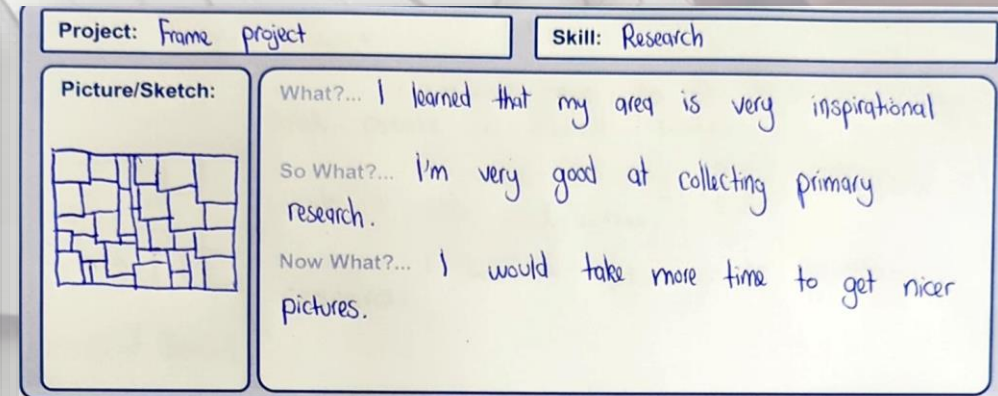 Project: Frame project
Skill: Research
Picture/Sketch:
What?... I learned that my area is very inspirational
So What?... I'm very good at collecting primary
research.
Now What?... I would take more time to get nicer
pictures.